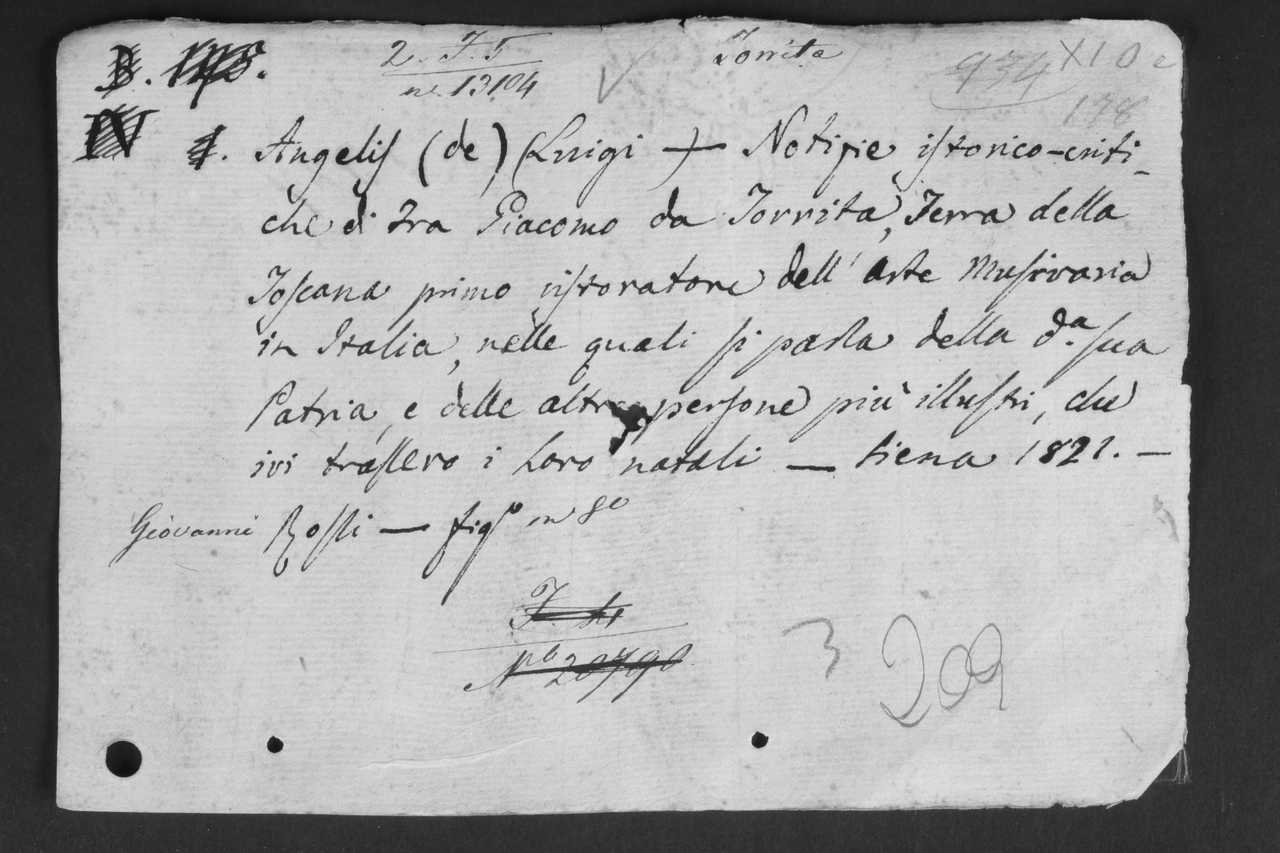 B. 148. 2. I. 5 Torrita 934 X10e
n. 13104 178
IV 4. Angelis (de) (Luigi) — Notizie istorico-criti-
che di Fra Giacomo da Torrita, Terra della
Toscana primo ristoratore dell' arte Musivaria
in Italia, nelle quali si parla della d.a sua
Patria, e delle altre persone più illustri, che
ivi trassero i loro natali — Siena 1821. —
Giovanni Rossi — fig.o in 8o
No 20790
3 209